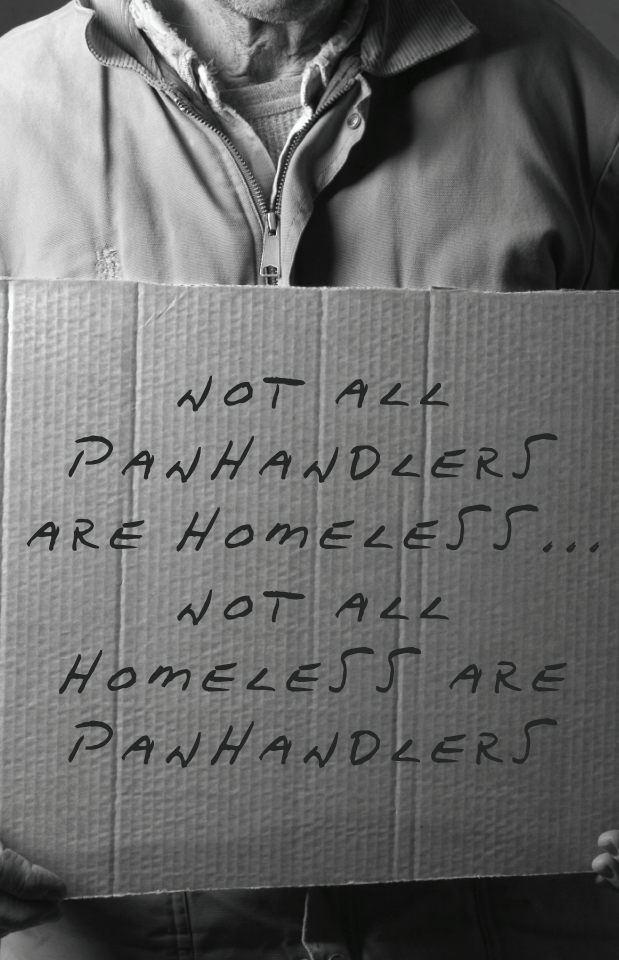 NOT ALL
PANHANDLERS
ARE HOMELESS...
NOT ALL
HOMELESS ARE
PANHANDLERS